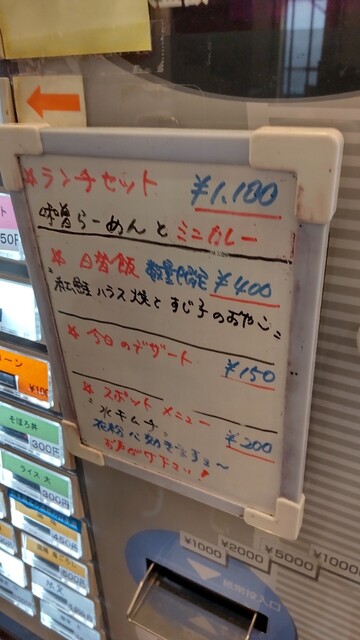 ☆ランチセット ¥1,180
味噌らーめんとミニカレー
☆日替飯 数量限定 ¥400
秋鮭ハラス焼とすじ子のおやこ
☆今日のデザート
¥150
☆スポットメニュー
水キムチ ¥200
お声がけ下さい!
50円
ーン
¥100
そぼろ丼
300円
ライス 大
300円
450円
¥1000
¥2000
¥5000
¥1000
紙幣投入口